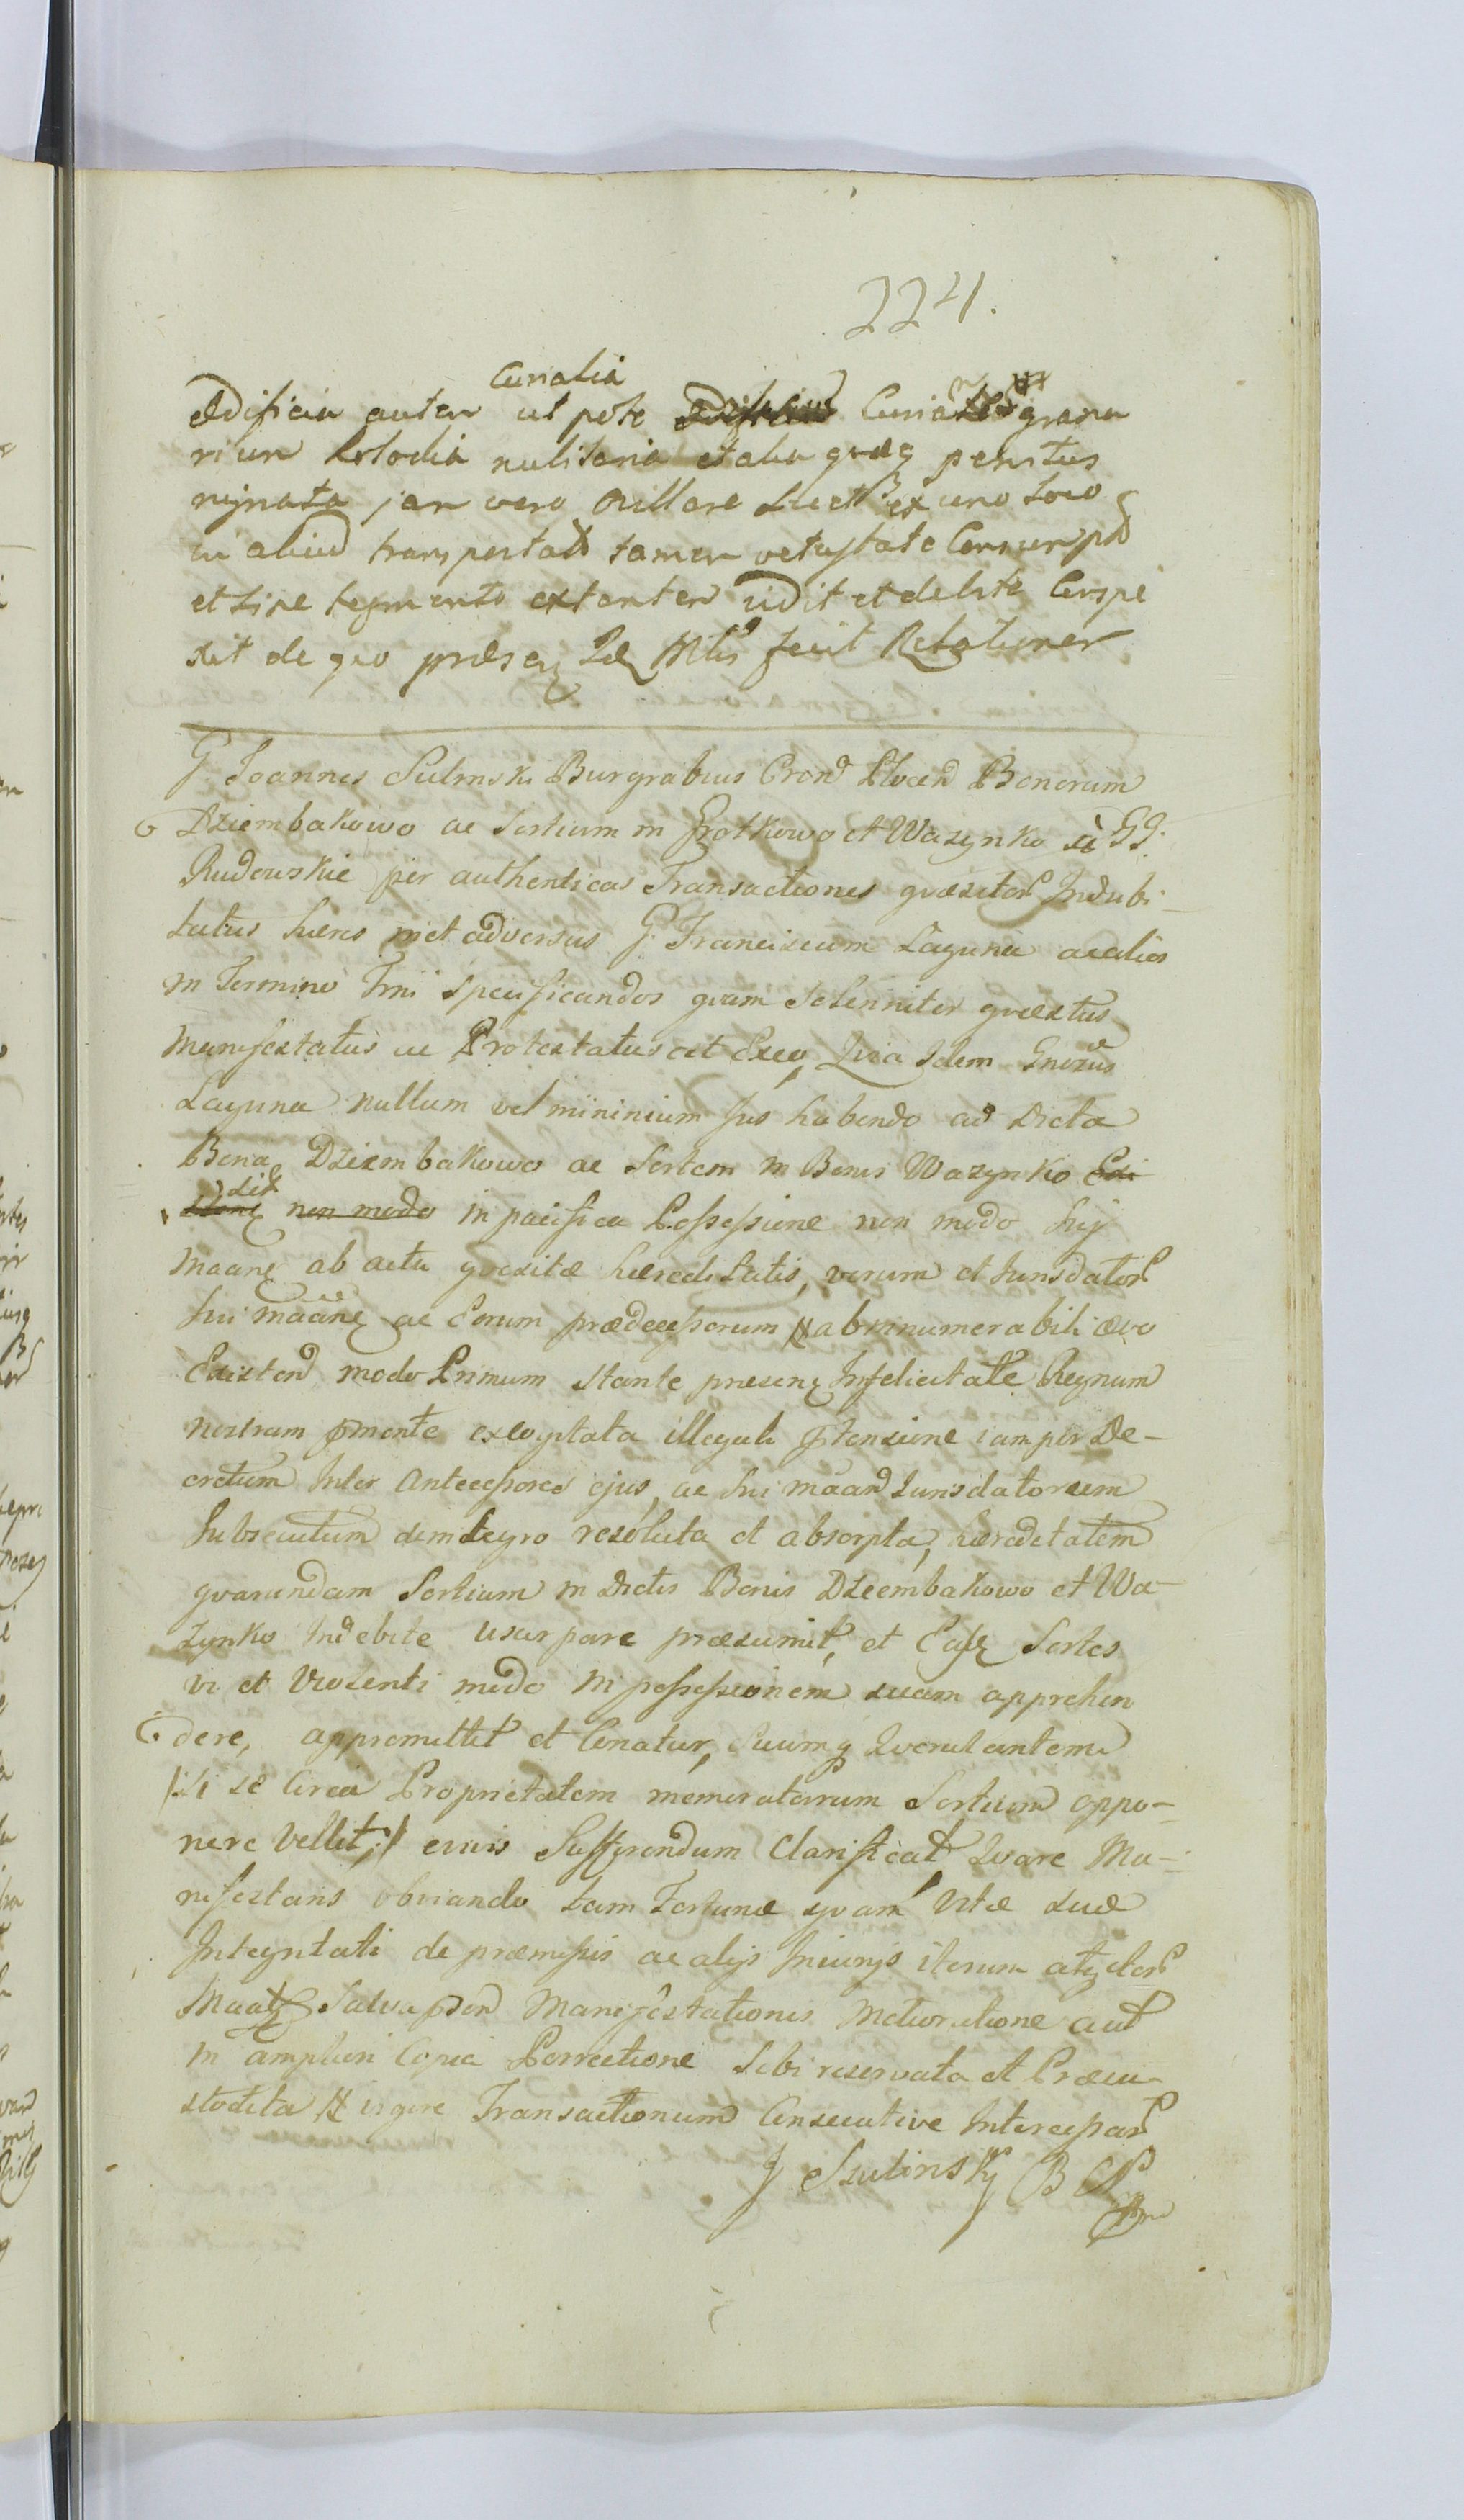 224.
Curialia
ædificia autem ut pote Curia grana
rium Custodia militaria et alia quæq penitus
rujnata jam vero Ovillare licet ex uno loco
in aliud transportat tamen vetustate Consumpt
et sine tegmento extantem vidit et debite Conspe
xit de quo præsen Suæ Mtis fecit Relationem
G. Joannes Sulinski Burgrabius Crend Plocen Bonorum
Dziembakowo ac Sortium in Grotkowo et Wazynko à GG.
Rudowskie per authenticas Transactiones quæsitor Indubi-
tatus hæres met adversus G. Franciscum Laguna ac alios
in Termino Tmi specificandos quam solenniter quæstus
Manifestatus ac Protestatus est Exeo, Quia Idem Gnosus
Laguna nullum vel minimum Jus habendo ad dicta
Bona Dziembakowo ac Sortem in Bonis Wazynko Exi
sten non modo in pacifica Possessione non modo huj
maane ab actu quæsitæ hæreditatis, verum et Jurisdator
hui māāne ac Eorum prædecessorum ab innumerabili ævo
Existend modo Primum stante præsen Infelicitate Regnum
nostrum pmente excogitata illegali ptensione iam per De-
cretum Inter Antecessores ejus, ac hui māand Jurisdatorem
Subsecutum deintegro resoluta et absorpta, hæreditatem
quarundam Sortium in dictis Bonis Dziembakowo et Wa-
zynko Indebite usurpare præsumit, et Easq Sortes
vi et violenti modo in possessionem suam apprehen
dere, appromittit et Conatur, Suumq Querulantem
/:si se Circa Proprietatem memoratarum Sortium oppo-
nere vellet:/ ensis Sufferendum Clarificat Quare Ma-
nifestans obviando tam Fortunæ quam Vitæ suæ
Integritati de præmissis ac alijs Iniurijs iterum atq iter
Maat Salva psen Manifestationis Melioratione aut
in ampliori Copia Porrectione Sibi reservata et Præcu-
stodita vigore Transactionum Consecutive Intercessar
J Szulinsky B C P